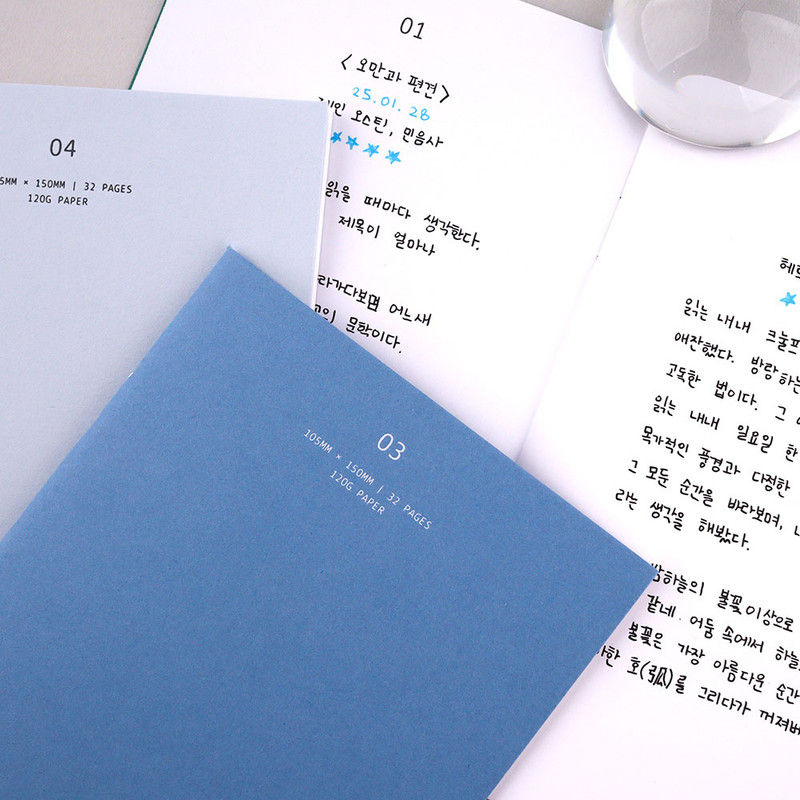 01
<오만과 편견>
25.01.28
오스틴, 민음사
읽을 때마다 생각한다.
제목이 얼마나
어느새
문학이다.
04
× 150MM | 32 PAGES
120G PAPER
03
105MM × 150MM | 32 PAGES
120G PAPER
읽는 내내
애잔했다. 방랑하는
고독한 법이다. 그
읽는 내내 일요일 한
목가적인 풍경과 다정한
그 모든 순간을 바라보며,
라는 생각을 해봤다.
밤하늘의 불꽃이상으로
같네. 어둠 속에서
불꽃은 가장 아름다운 순간
호(弧)를 그리다가